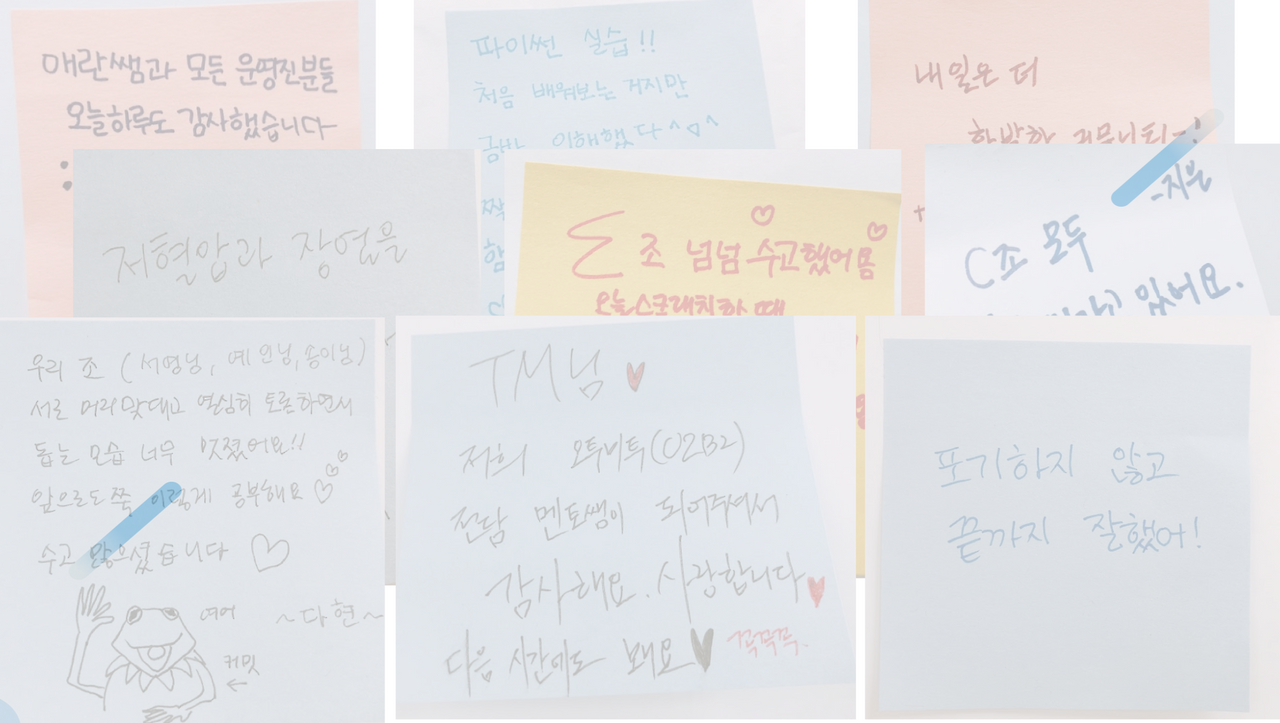 매란쌤과 모든 운영진분들
오늘하루도 감사했습니다
파이썬 실습!!
처음 배워보는 거지만
이해했다^o^
내일은 더
저혈압과 장염을
Σ조 넘넘 수고했어욤
오늘스크래치할 때
-지윤
C조 모두
있어요.
우리 조 (서영님, 예인님, 송이님)
서로 머리맞대고 열심히 토론하면서
돕는 모습 너무 멋졌어요!!
앞으로도쭉 이렇게 공부해요 ♡
수고 많으셨습니다 ♡
여어
~다현~
커밋
TM님 ♥
저희 오투비투(O2B2)
전담 멘토쌤이 되어주셔서
감사해요. 사랑합니다 ♥
다음 시간에도 봬요 ♥ 꾹꾹꾹.
포기하지 않고
끝까지 잘했어!